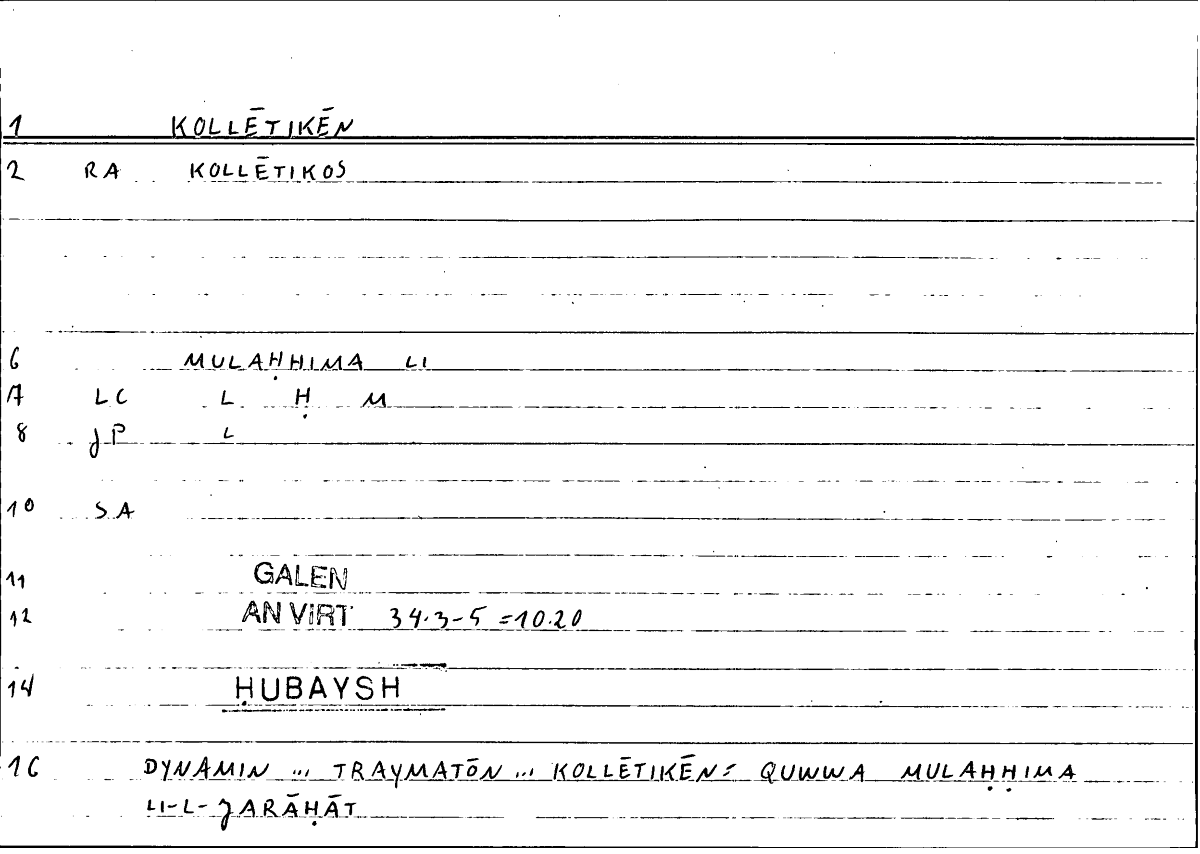 1 KOLLĒTIKĒN
2 RA KOLLĒTIKOS
6 MULAḤḤIMA LI
7 LC L Ḥ M
8 JP L
10 SA
11 GALEN
12 AN VIRT 34.3-5 =10.20
14 ḤUBAYSH
16 DYNAMIN ... TRAYMATŌN ... KOLLĒTIKĒN = QUWWA MULAḤḤIMA
LI-L-JARĀḤĀT